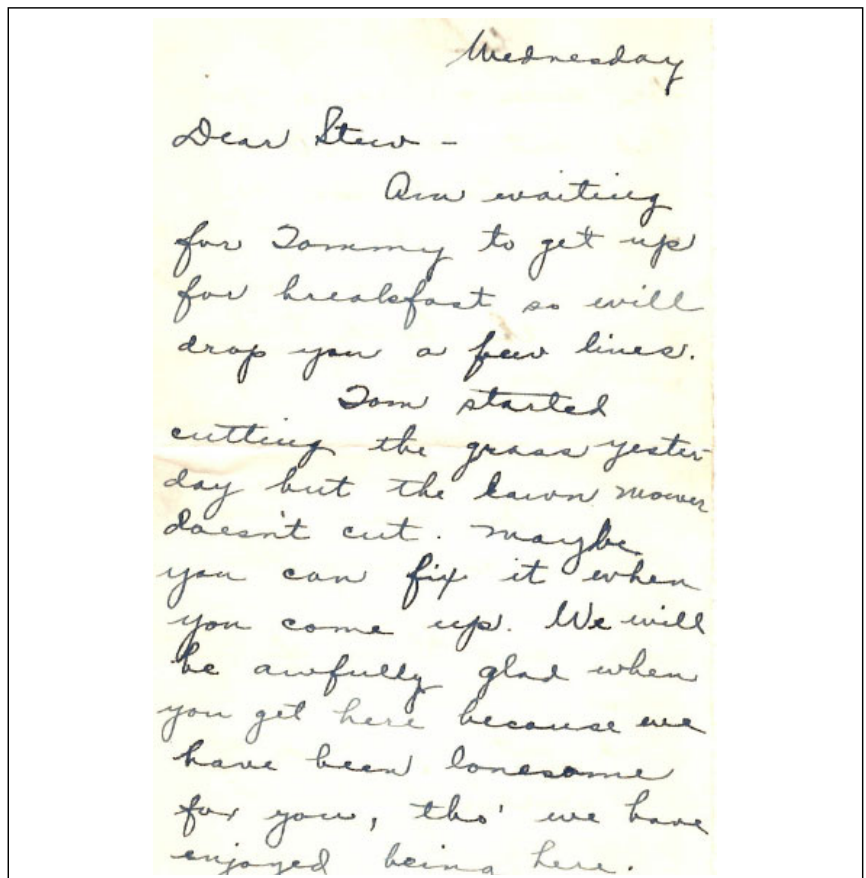 Wednesday
Dear Stew -
Am waiting
for Tommy to get up
for breakfast so will
drop you a few lines.
Tom started
cutting the grass yester-
day but the lawn mower
doesn't cut. Maybe
you can fix it when
you come up. We will
be awfully glad when
you get here because we
have been lonesome
for you, tho' we have
enjoyed being here.